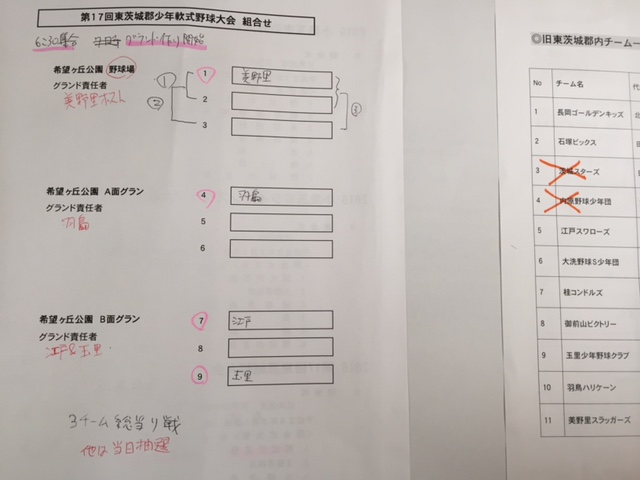 第17回東茨城郡少年軟式野球大会 組合せ
6:30集合 グランド作り開始
希望ヶ丘公園 野球場
グランド責任者
美野里ホスト
① ② ③
1 美野里
2
3
希望ヶ丘公園 A面グラン
グランド責任者
羽鳥
4 羽鳥
5
6
希望ヶ丘公園 B面グラン
グランド責任者
江戸&玉里
7 江戸
8
9 玉里
3チーム総当り戦
他は当日抽選
◎旧東茨城郡内チーム一
No チーム名 代
1 長岡ゴールデンキッズ 北
2 石塚ビックス
3 茨城スターズ
4 内原野球少年団
5 江戸スワローズ
6 大洗野球S少年団
7 桂コンドルズ
8 御前山ビクトリー
9 玉里少年野球クラブ
10 羽鳥ハリケーン
11 美野里スラッガーズ